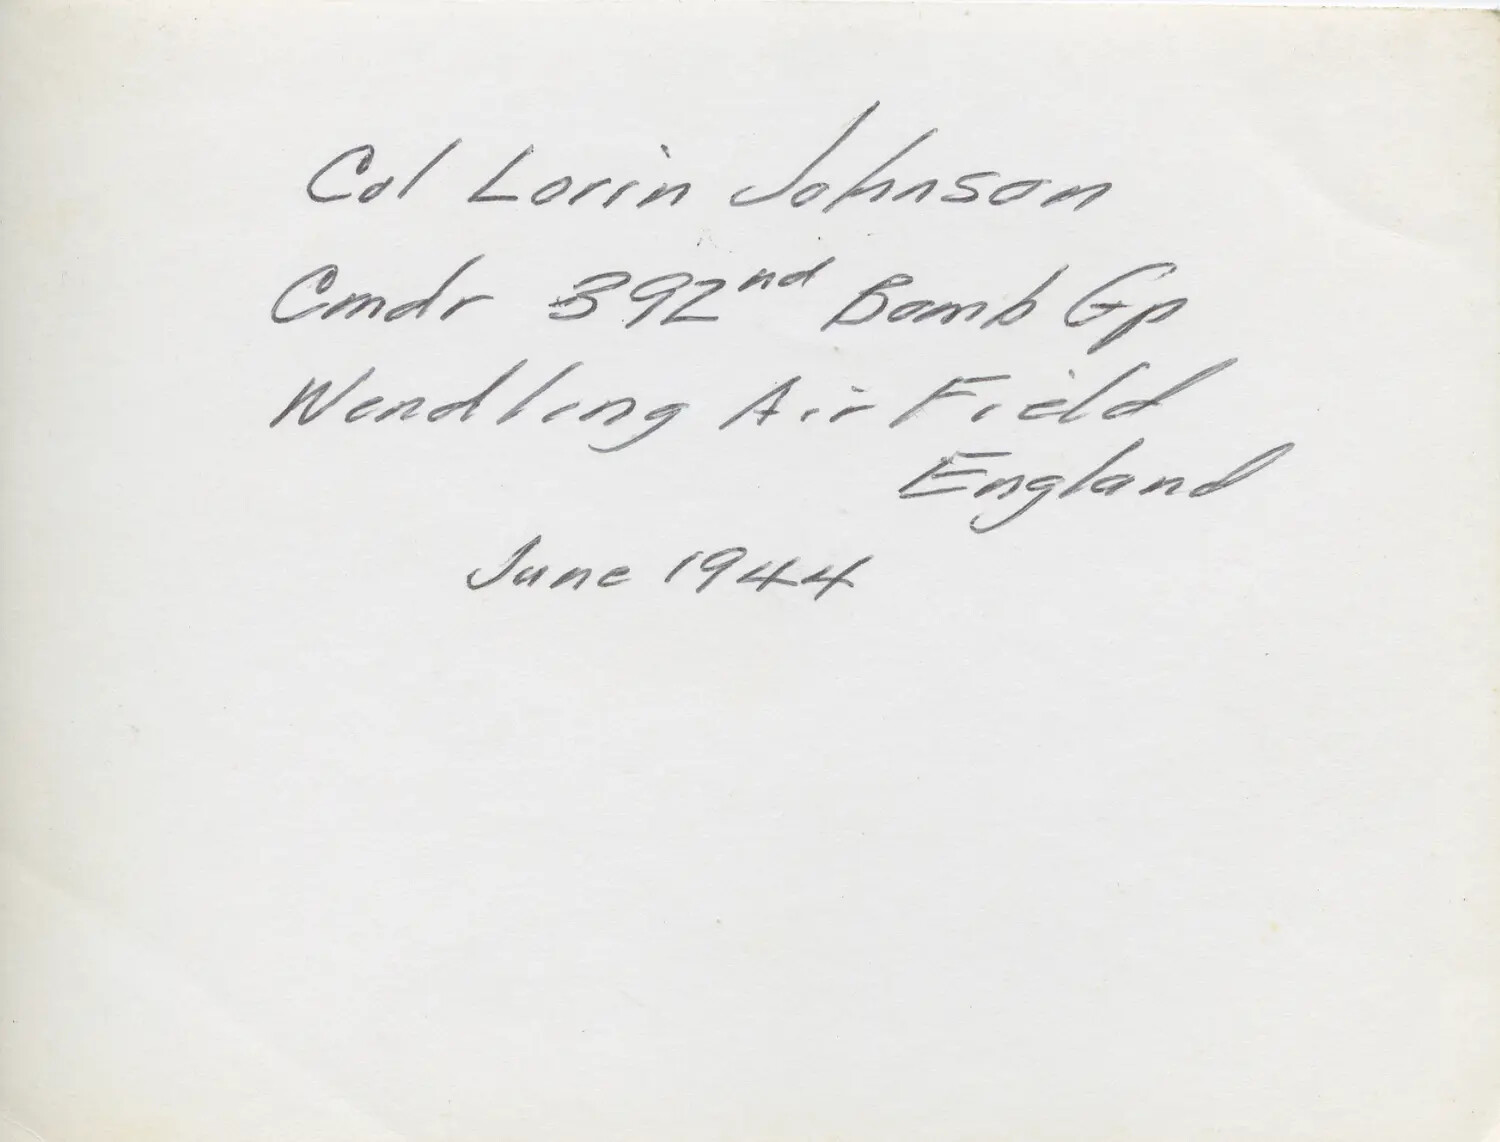 Col Lorin Johnson
Cmdr 392nd Bomb Gp
Wendling Air Field
England
June 1944